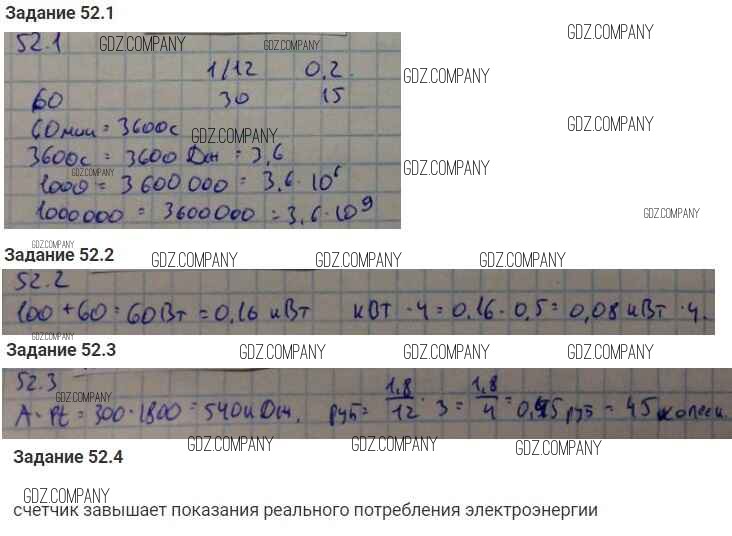 Задание 52.1
52.1 GDZ.COMPANY GDZ.COMPANY GDZ.COMPANY
1/12 0,2. GDZ.COMPANY
60 30 15
60 мин = 3600с GDZ.COMPANY GDZ.COMPANY
3600с = 3600 Дж = 3,6
GDZ.COMPANY GDZ.COMPANY
1000 = 3 600 000 = 3,6 · 10⁶
1000000 = 3600000 = 3,6 · 10⁹ GDZ.COMPANY
GDZ.COMPANY
Задание 52.2 GDZ.COMPANY GDZ.COMPANY GDZ.COMPANY
52.2
100 + 60 = 60 Вт = 0,16 кВт кВт · ч = 0,16 · 0,5 = 0,08 кВт · ч.
Задание 52.3 GDZ.COMPANY GDZ.COMPANY GDZ.COMPANY
52.3
GDZ.COMPANY
A = Pt = 300 · 1800 = 540 кДж. руб = 1,8/12 · 3 = 1,8/4 = 0,45 руб = 45 копеек.
GDZ.COMPANY GDZ.COMPANY GDZ.COMPANY
Задание 52.4
GDZ.COMPANY
счетчик завышает показания реального потребления электроэнергии